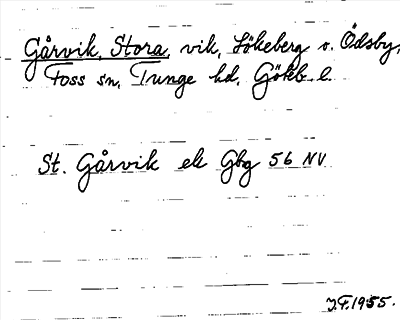 Gårvik, Stora, vik, Lökeberg o. Ödsby,
Foss sn, Tunge hd, Göteb. l.
St. Gårvik ek Gbg 56 NV
J.F. 1955.